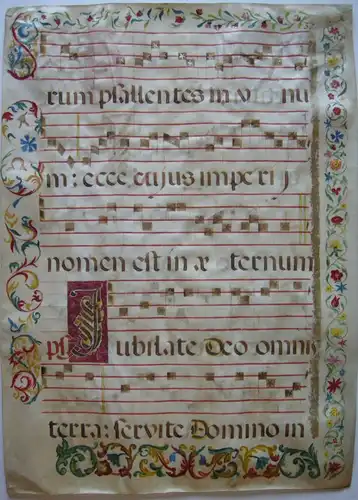 rum psallentes in unu
m: ecce cujus imperij
nomen est in æternum
ps Jubilate Deo omnis
terra: servite Domino in